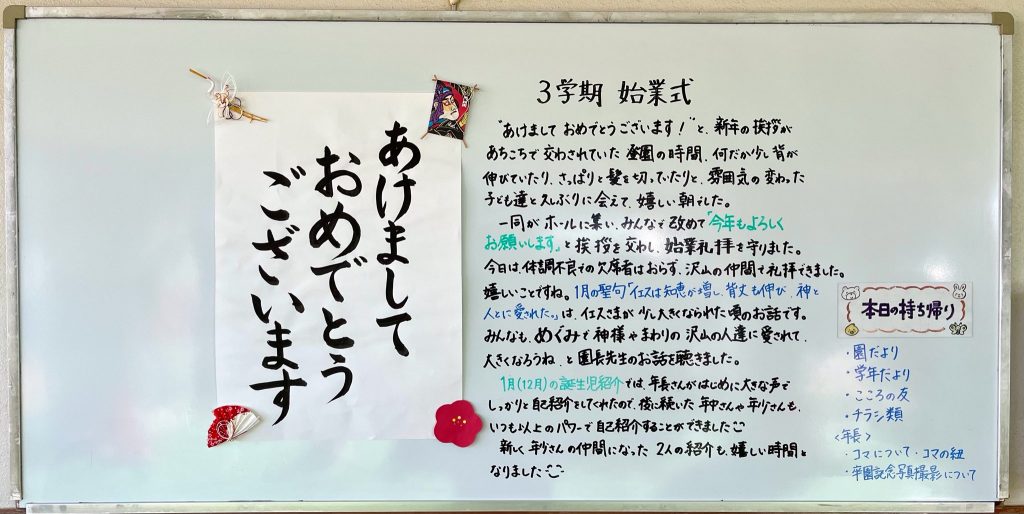 あけまして
おめでとう
ございます
3学期 始業式
"あけまして おめでとうございます！"と、新年の挨拶が
あちこちで交わされていた登園の時間、何だか少し背が
伸びていたり、さっぱりと髪を切っていたりと、雰囲気の変わった
子ども達と久しぶりに会えて、嬉しい朝でした。
一同がホールに集い、みんなで改めて「今年もよろしく
お願いします」と挨拶を交わし、始業礼拝を守りました。
今日は、体調不良での欠席者はおらず、沢山の仲間で礼拝できました。
嬉しいことですね。1月の聖句「イエスは知恵が増し、背丈も伸び、神と
人とに愛された。」は、イエスさまが少し大きくなられた頃のお話です。
みんなも、めぐみで神様やまわりの沢山の人達に愛されて、
大きくなろうね、と園長先生のお話を聴きました。
1月(12月)の誕生児紹介では、年長さんがはじめに大きな声で
しっかりと自己紹介をしてくれたので、後に続いた年中さんや年少さんも、
いつも以上のパワーで自己紹介することができました
新しく年少さんの仲間になった2人の紹介も、嬉しい時間と
なりました
本日の持ち帰り
・園だより
・学年だより
・こころの友
・チラシ類
<年長>
・コマについて・コマの紐
・卒園記念写真撮影について